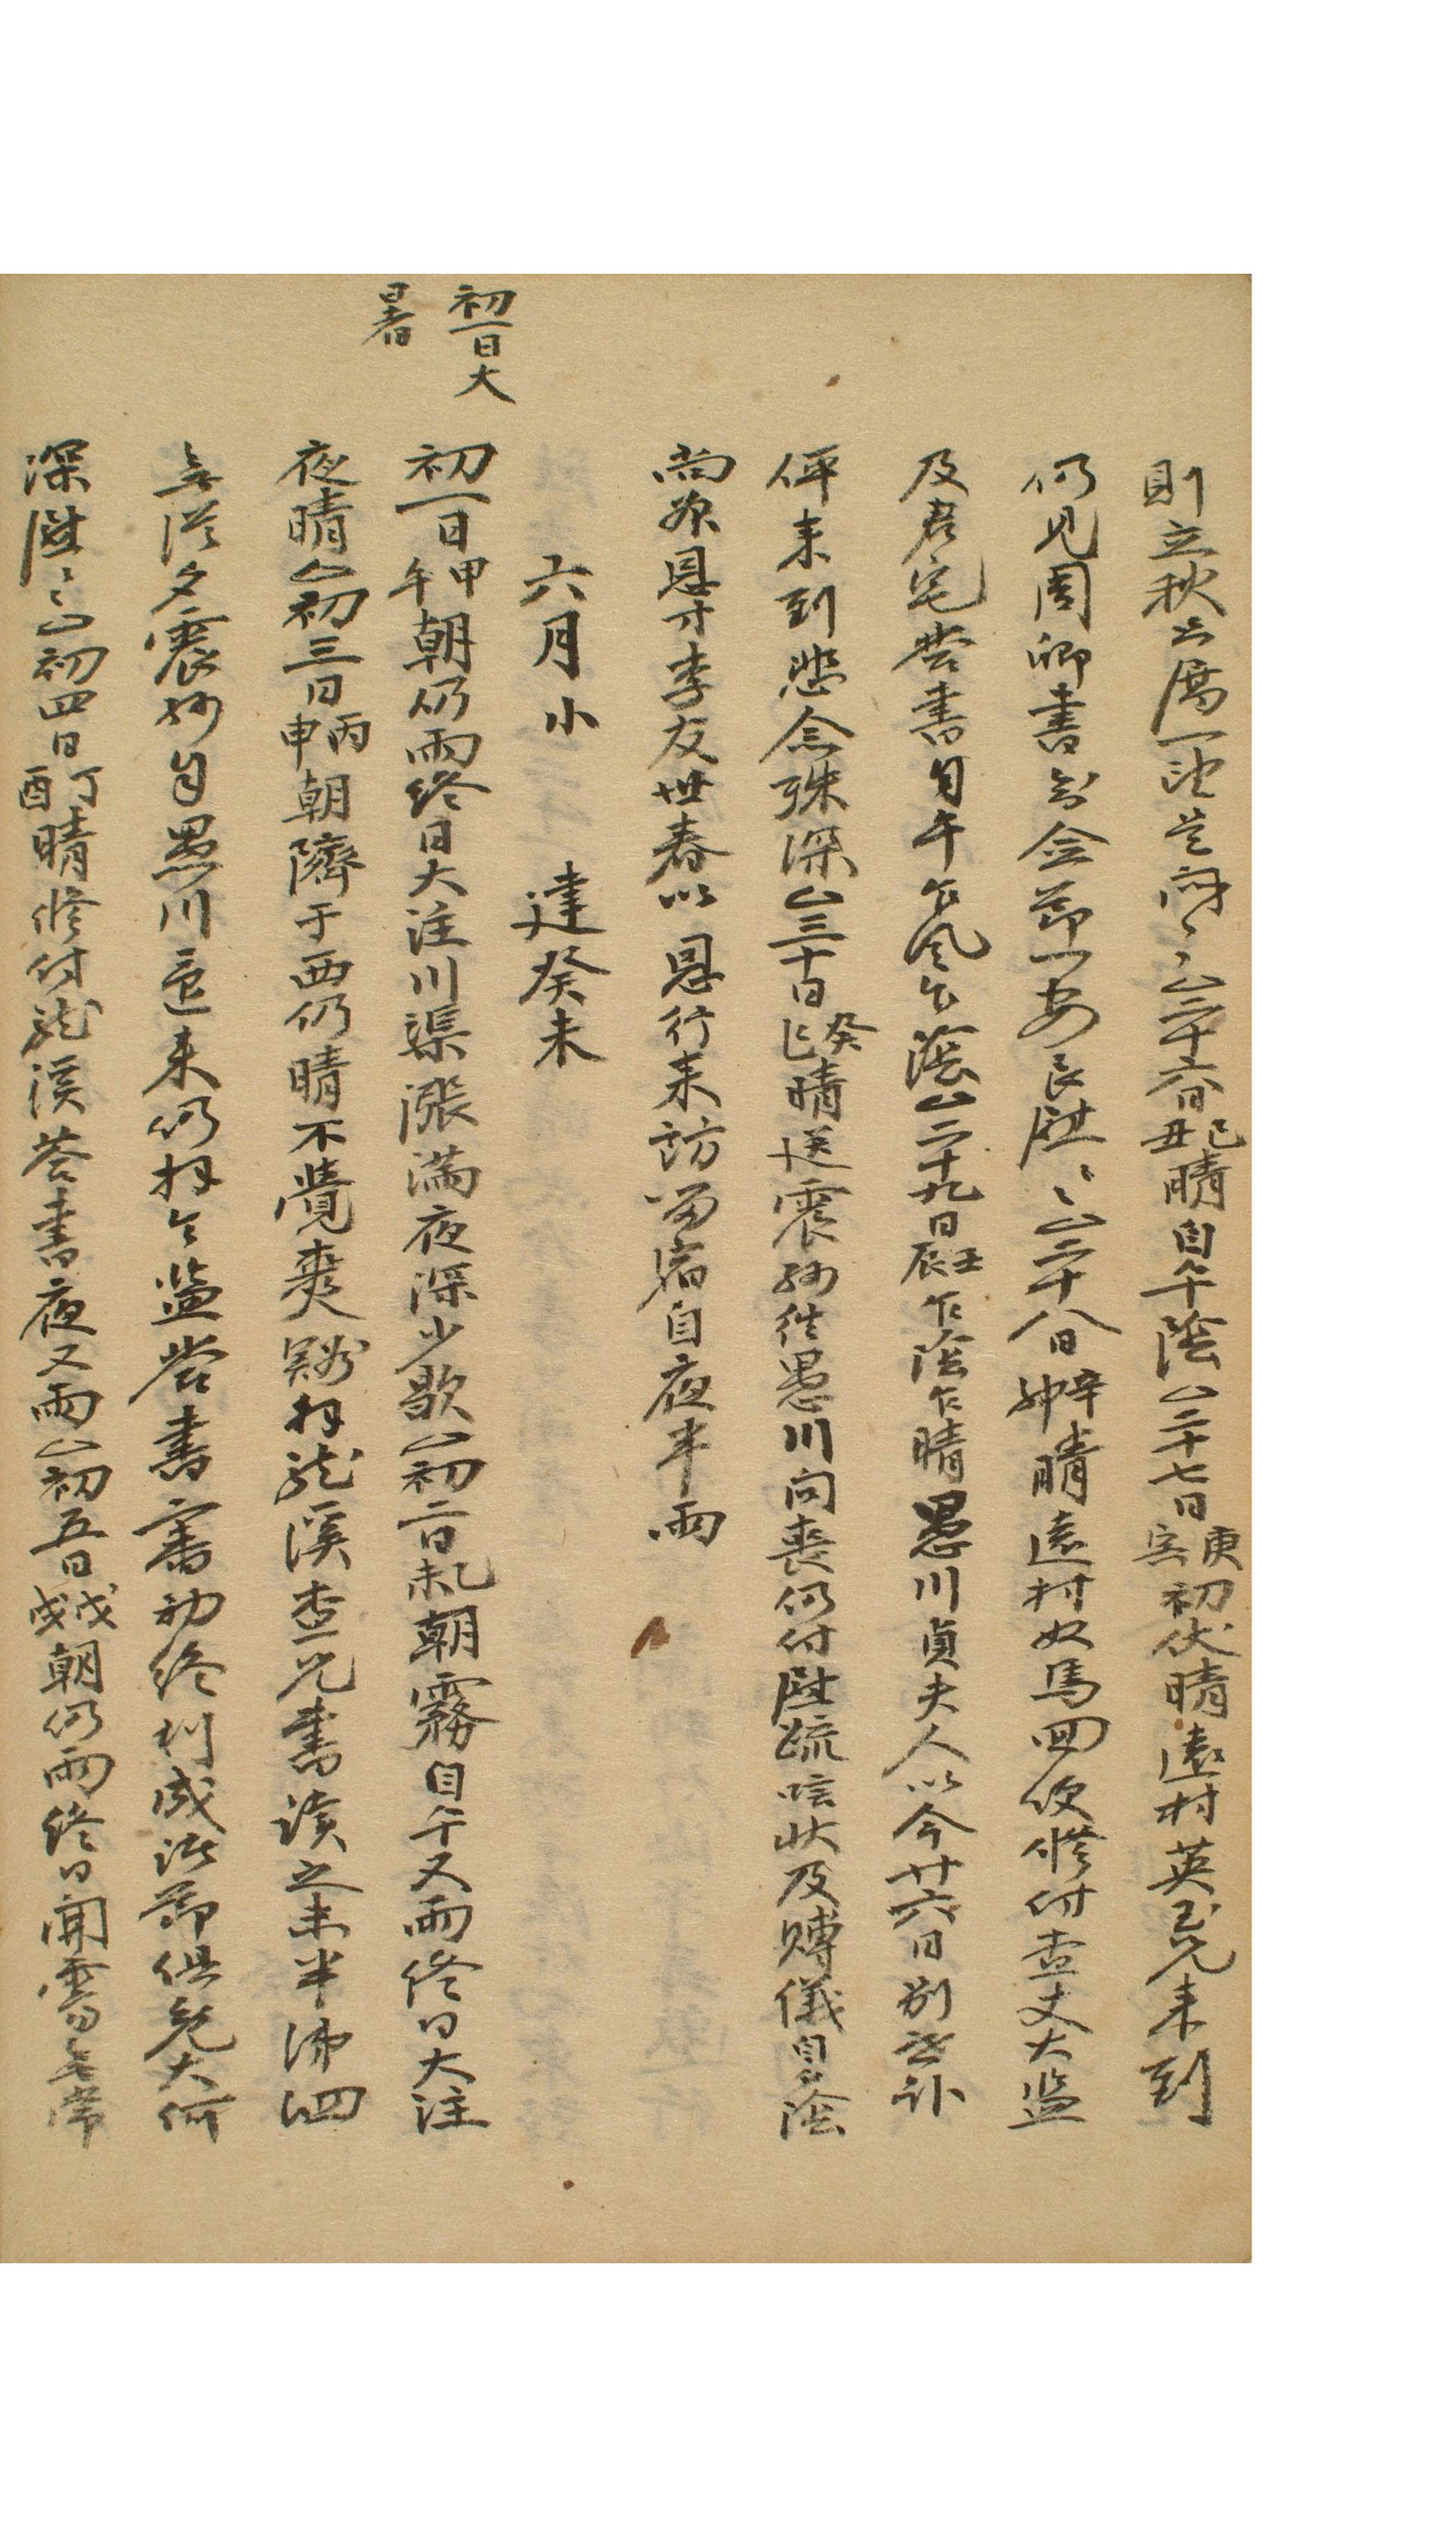 則立秋亦屬一 〻△二十六日己丑晴自午陰△二十七日庚寅初伏晴遠村英兄來到
仍見周卿書 僉節一安良慰〻△二十八日辛卯晴遠村奴馬回便修付査丈大監
及君宅答書自午乍風乍陰△二十九日壬辰乍陰乍晴愚川貞夫人以今廿六日別世訃
伻來到悲念殊深△三十日癸巳晴送震姪往愚川問喪仍付慰疏唁狀及賻儀自夕陰
尚 恩寸李友世春以 恩行來訪留宿自夜半雨
六月小 建癸未
初一日甲午朝仍雨終日大注川渠漲滿夜深少歇△初二日乙未朝霧自午又雨終日大注
初二日大
暑
夜晴△初三日丙申朝隮于西仍晴不覺爽 拜龍溪査兄書讀之未半涕泗
無從夕震姪自愚川還來仍拜令監答書審初終利成諸節俱免大何
深慰〻△初四日丁酉晴修付龍溪答書夜又雨△初五日戊戌朝仍雨終日開霽無常